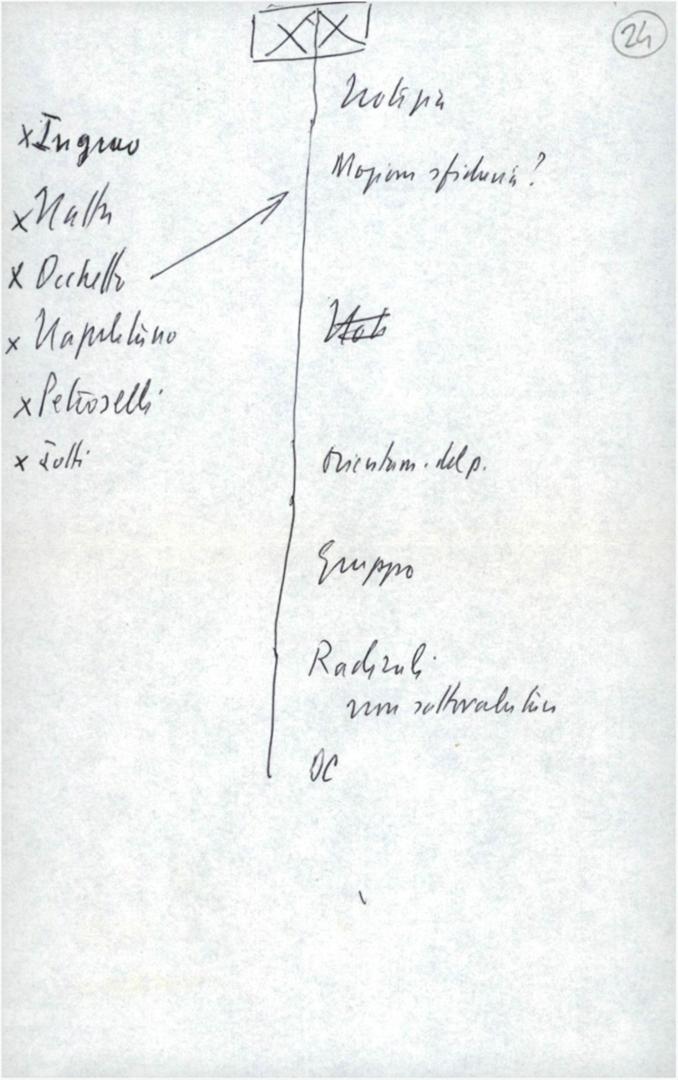 24
XX
x Ingrao
x Natta
x Occhetto
x Napolitano
x Petroselli
x Iotti
Notizia
Mozione sfiducia?
Orientam. del p.
Gruppo
Radicali
non sottovalutare
DC